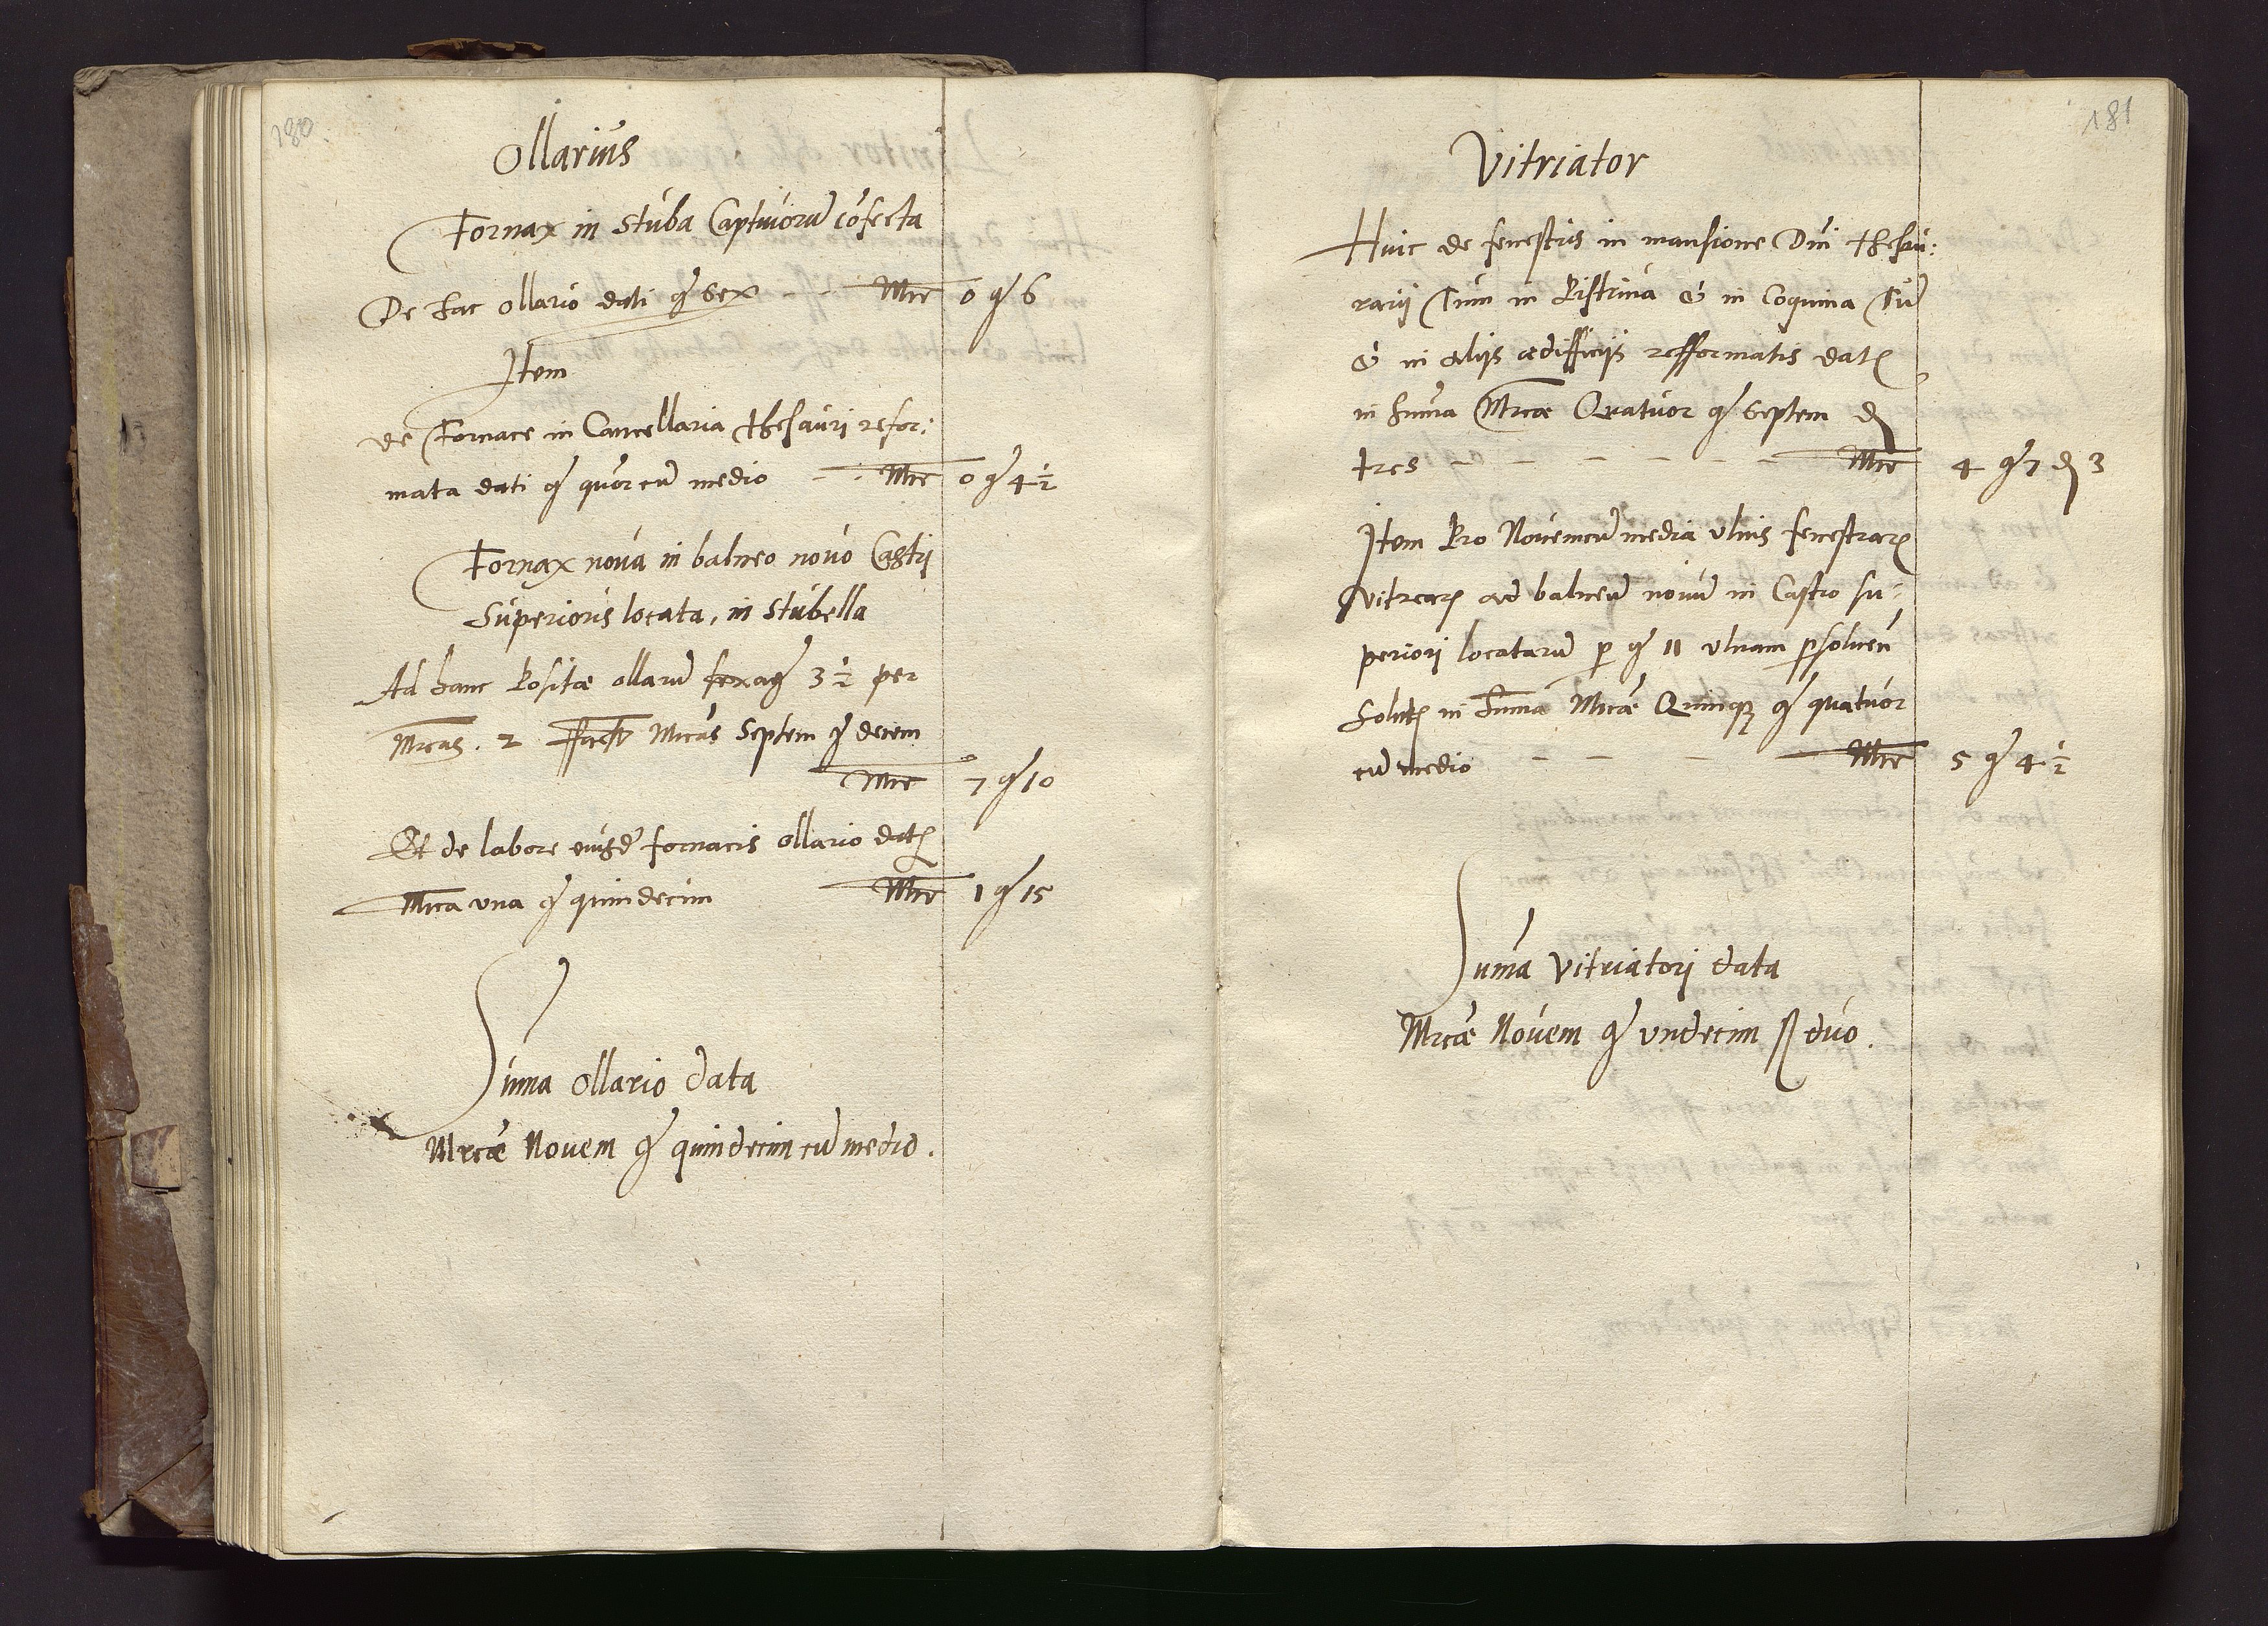 180
Ollarius
Fornax in Stuba Captivorū cōfecta
De hac ollario dati gͬ Sex - - Mrc 0 gͬ 6
Item
de Fornace in Cancellaria Thesauri refor:
mata dati gͬ quōr cū medio - - Mrc 0 gͬ 4 ½
Fornax nova in balneo novo Castrj
Superioris locata, in Stubella
Ad hanc Positæ ollarū sexag 3 ½ per
Mrcas. 2 Mrcas Septem gͬ decem
Mrc 7 gͬ 10
Et de labore eiusdē fornacis ollario datꝭ
Mrca una gͬ quindecim Mrc 1 gͬ 15
Sum̄a ollario data
Mrcæ Novem gͬ quindecim cū medio.
181
Vitriator
Huic de fenestris in mansione Dnī Thesau:
rarij Tum in Pistrina & in Coquina Tū
& in alijs ædifficijs refformatis datꝭ
in sum̄a Mrcæ Quatuor gͬ Septem ₰
tres - - - - - - Mrc 4 gͬ 7 ₰ 3
Item Pro Novem cū media ulnis fenestrarꝭ
vitrearꝭ ad balneū novū in Castro su:
periorj locatarū ꝑ gͬ 11 ulnam ꝑsoluen̄
solutꝭ in Sum̄a Mrcæ Quinqꝫ gͬ quatuor
cū medio - - - - Mrc 5 gͬ 4 ½
Sum̄a Vitriatorj data
Mrcæ Novem gͬ undecim ß duo.